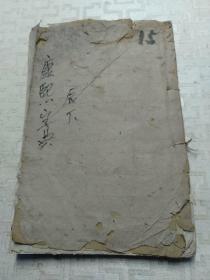 15
康熙字典
辰下